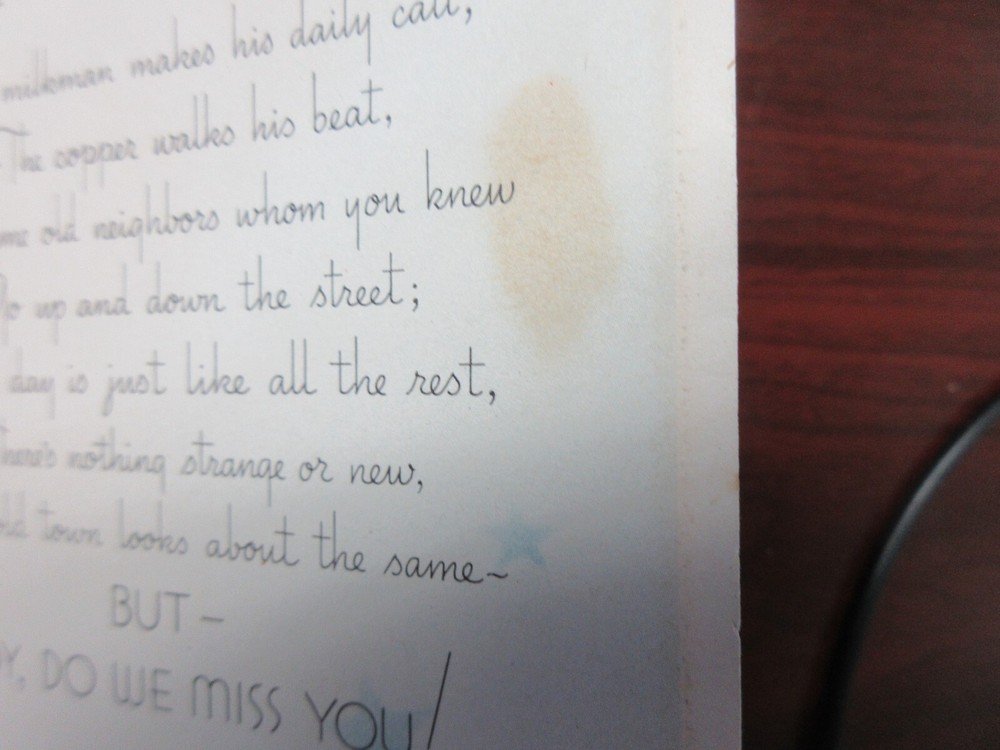 milkman makes his daily call,
The copper walks his beat,
me old neighbors whom you knew
Go up and down the street;
day is just like all the rest,
There's nothing strange or new,
old town looks about the same~
BUT -
Y, DO WE MISS YOU!